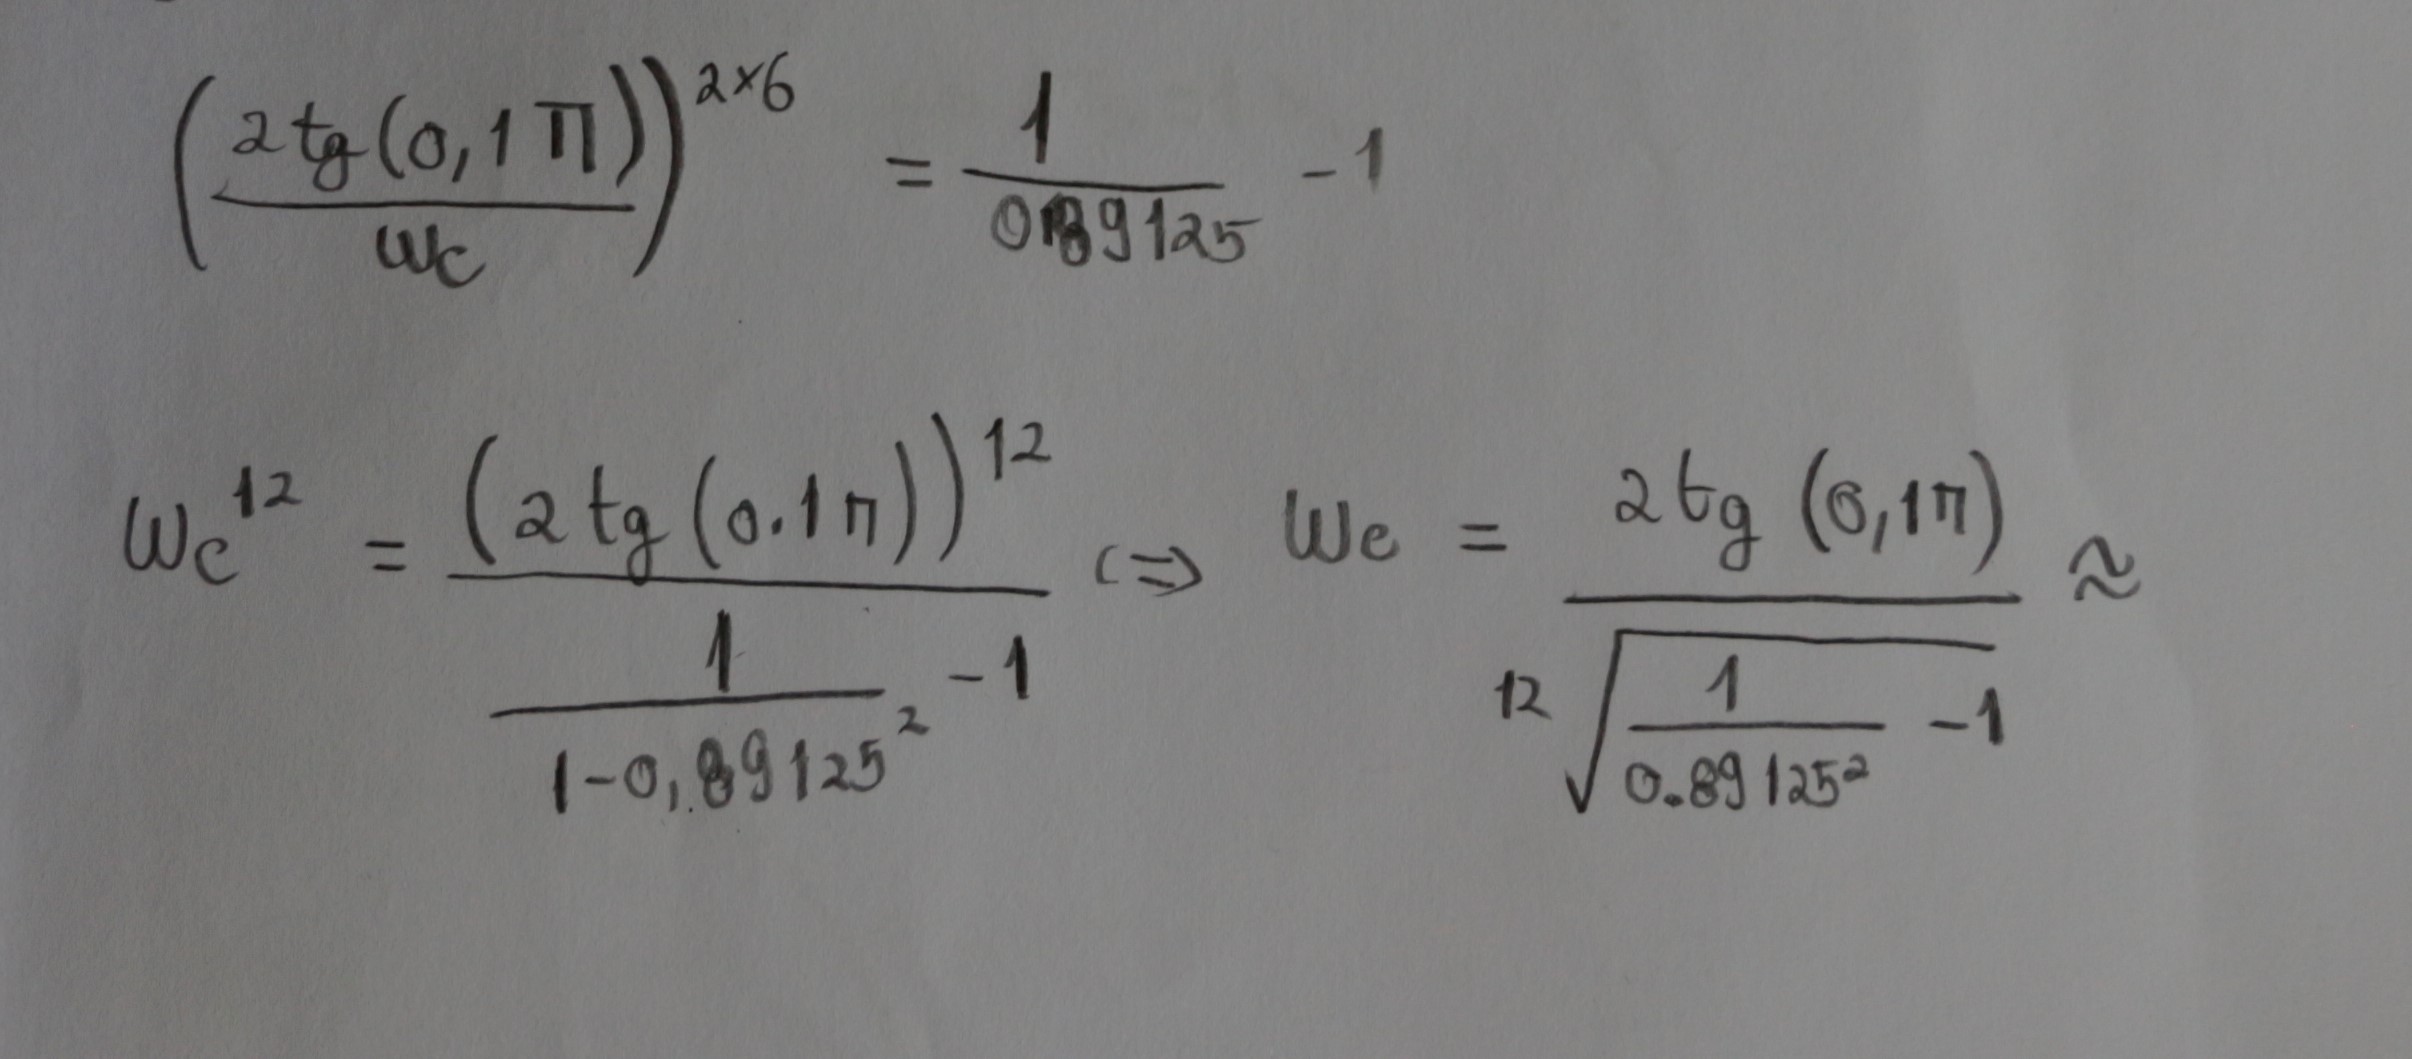 (2tg(0,1π)/ωc)^2×6 = 1/0,89125 - 1
ωc^12 = (2tg(0.1π))^12/(1/(1-0,89125^2) - 1) (=) ωc = 2tg(0,1π)/12√(1/0.89125^2 - 1) ≈